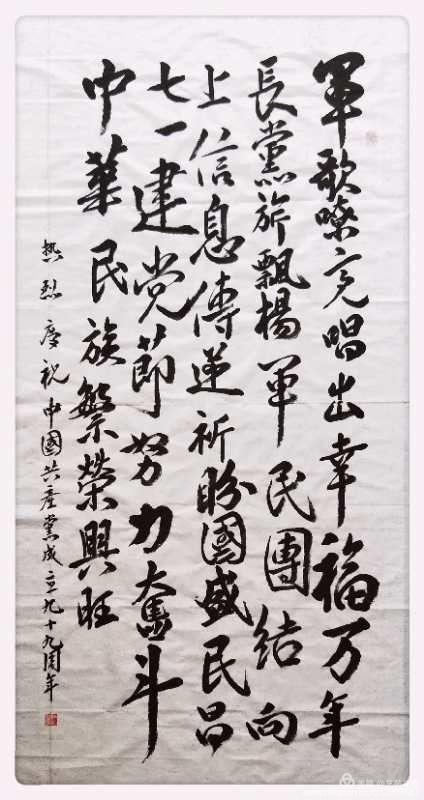 軍歌嘹亮唱出幸福万年
長黨旂飄楊軍民團结向
上信息傳递祈盼國盛民昌
七一建党節努力奮斗
中華民族繁榮興旺
热烈庆祝中國共産黨成立九十九周年